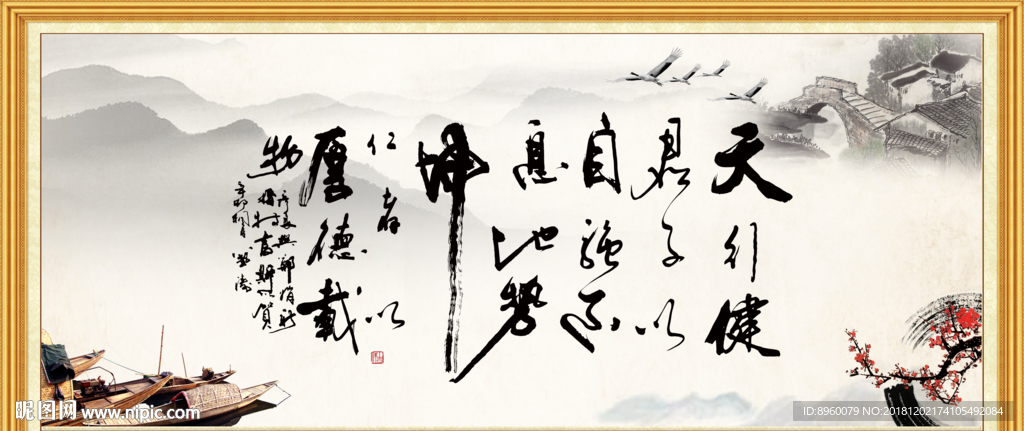 天行健
君子以
自強不
息地勢
坤
仁者以
厚德載
物
昵图网 www.nipic.com
ID:8960079 NO:20181202174105492084